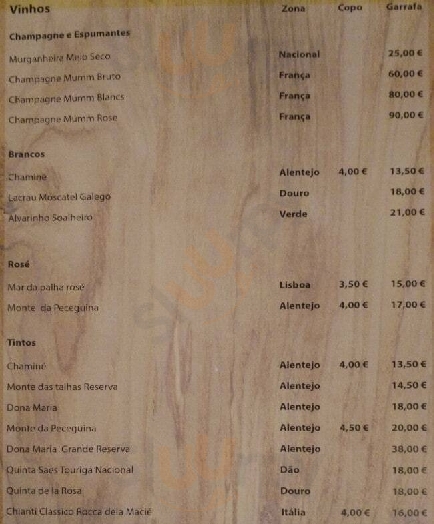 Vinhos Zona Copo Garrafa
Champagne e Espumantes
Murganheira Meio Seco Nacional 25,00 €
Champagne Mumm Bruto França 60,00 €
Champagne Mumm Blancs França 80,00 €
Champagne Mumm Rose França 90,00 €
Brancos
Chaminé Alentejo 4,00 € 13,50 €
Lacrau Moscatel Galego Douro 18,00 €
Alvarinho Soalheiro Verde 21,00 €
Rosé
Mar da palha rosé Lisboa 3,50 € 15,00 €
Monte da Peceguina Alentejo 4,00 € 17,00 €
Tintos
Chaminé Alentejo 4,00 € 13,50 €
Monte das talhas Reserva Alentejo 14,50 €
Dona Maria Alentejo 18,00 €
Monte da Peceguina Alentejo 4,50 € 20,00 €
Dona Maria Grande Reserva Alentejo 38,00 €
Quinta Saes Touriga Nacional Dão 18,00 €
Quinta de la Rosa Douro 18,00 €
Chianti Classico Rocca dela Macié Itália 4,00 € 16,00 €